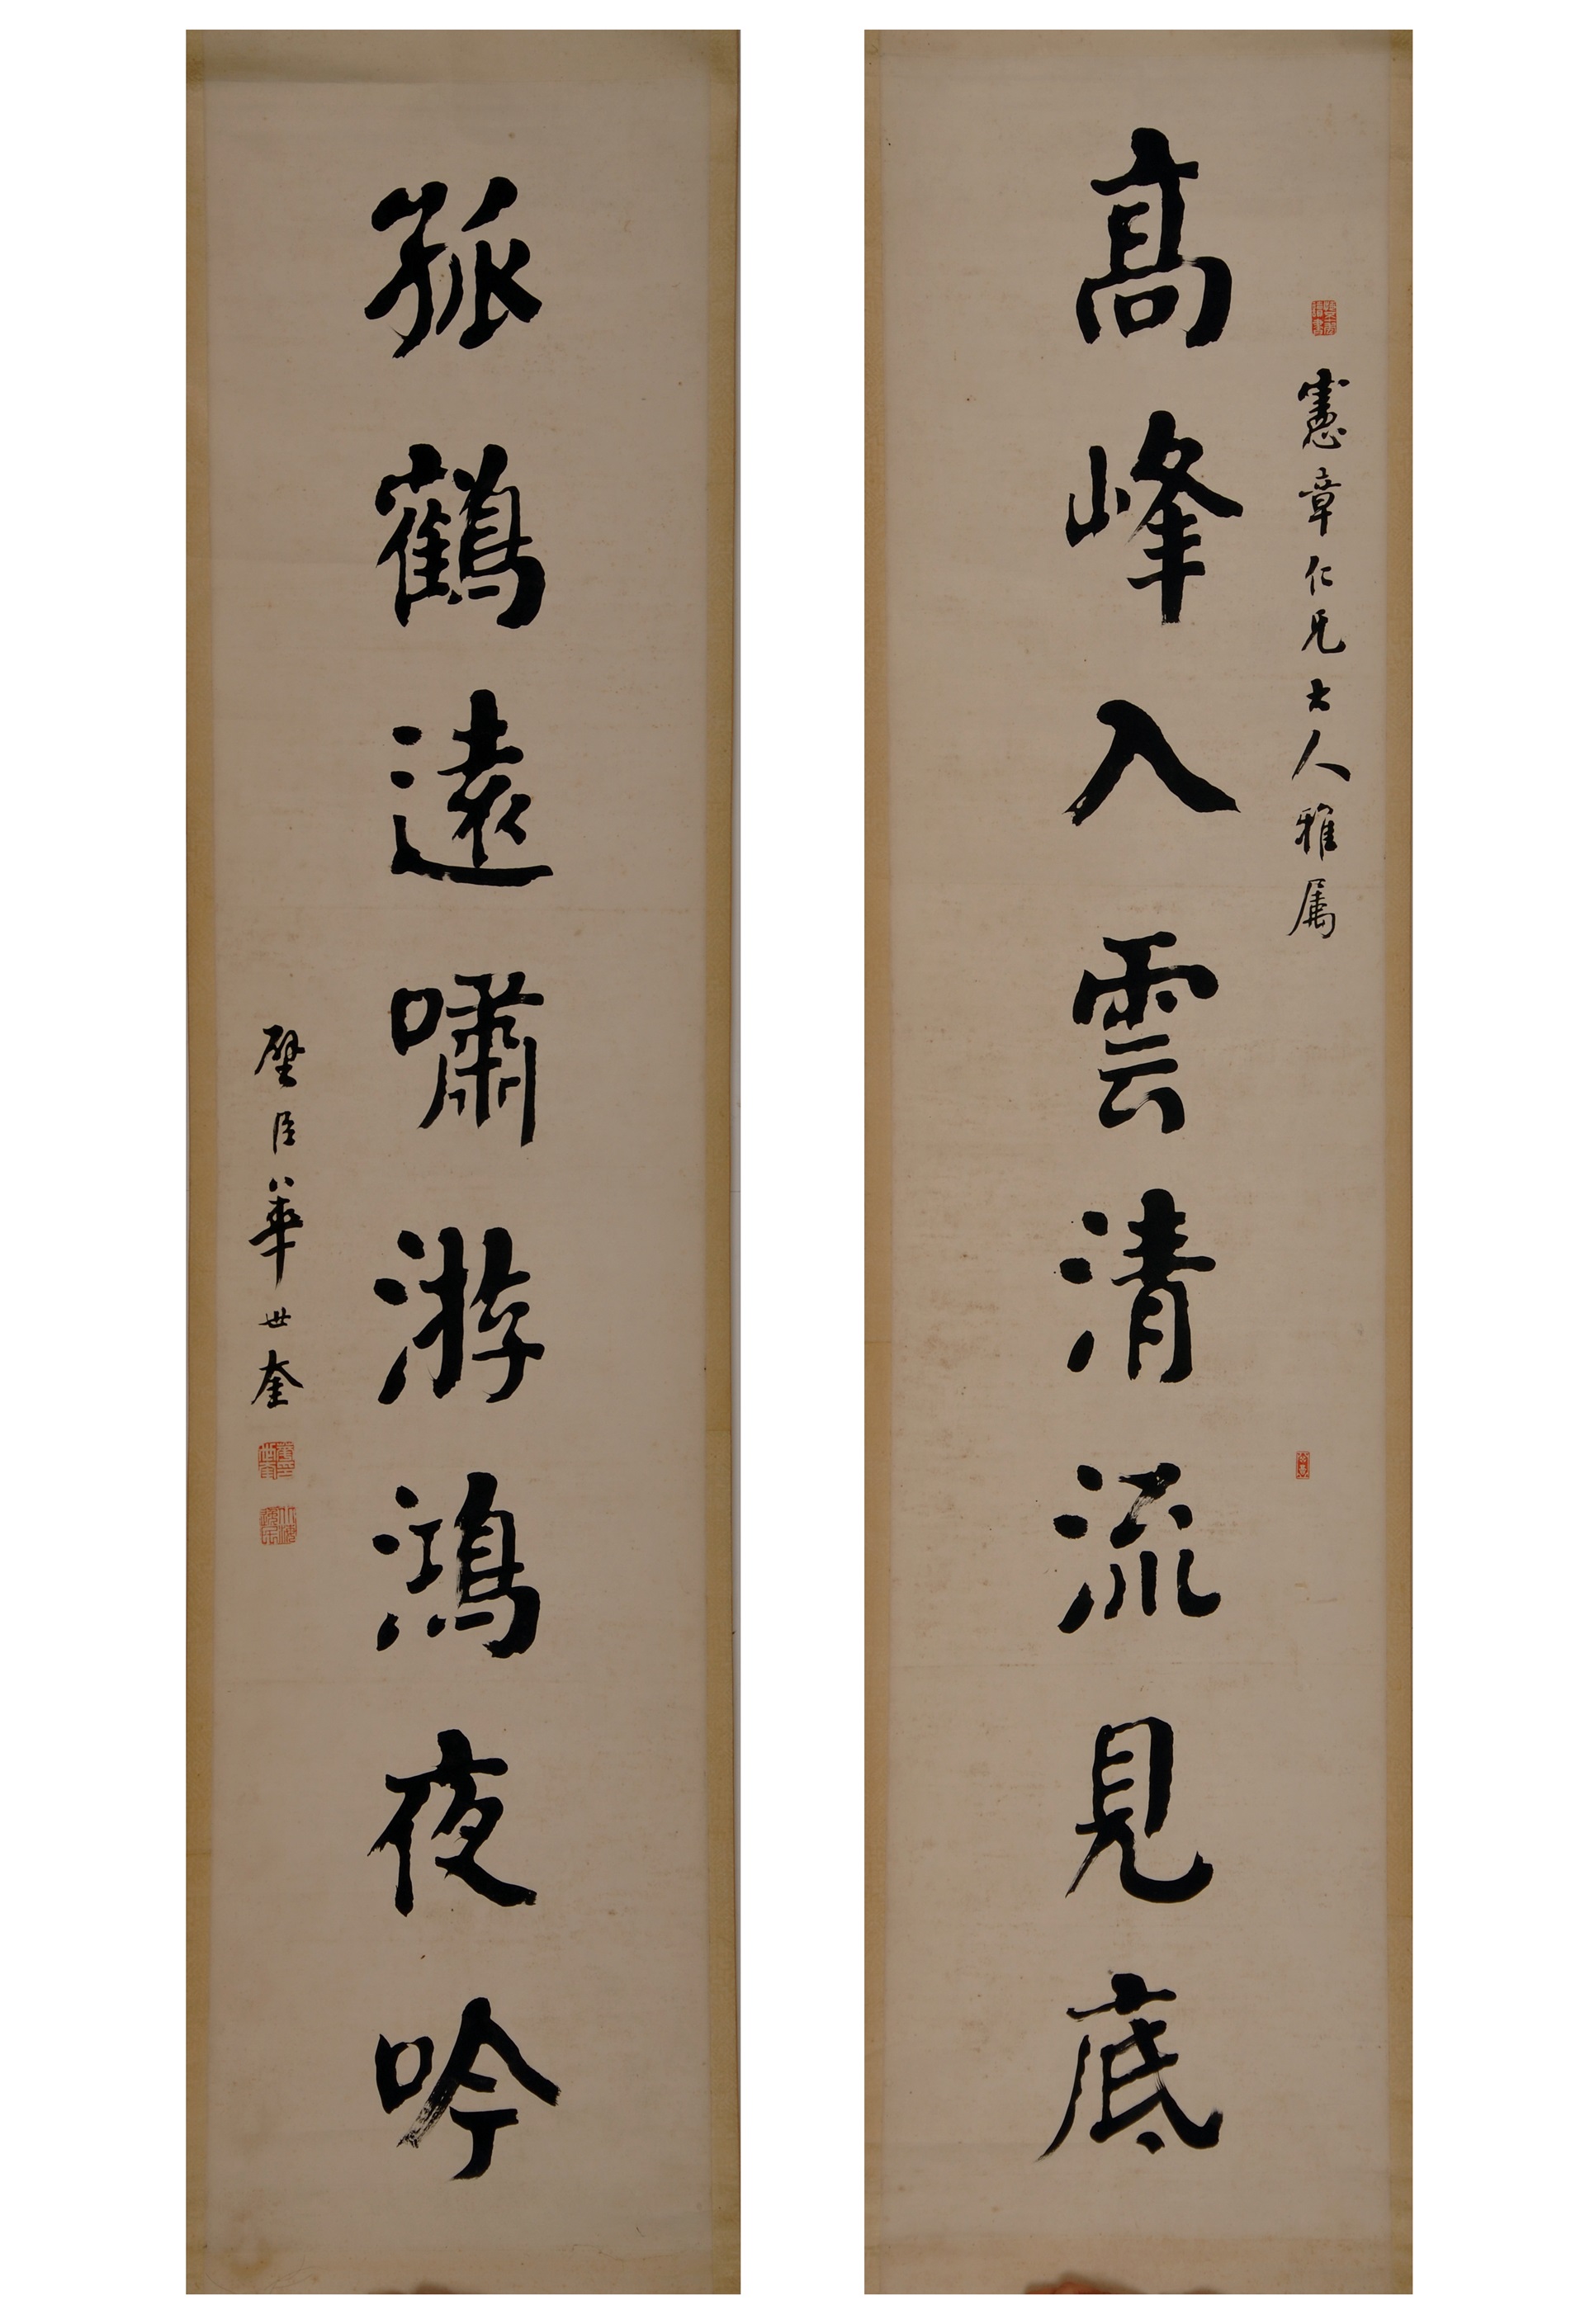 憲章仁兄大人雅属
高峰入雲清流見底
孤鶴遠嘯游鴻夜吟
璧臣華世奎